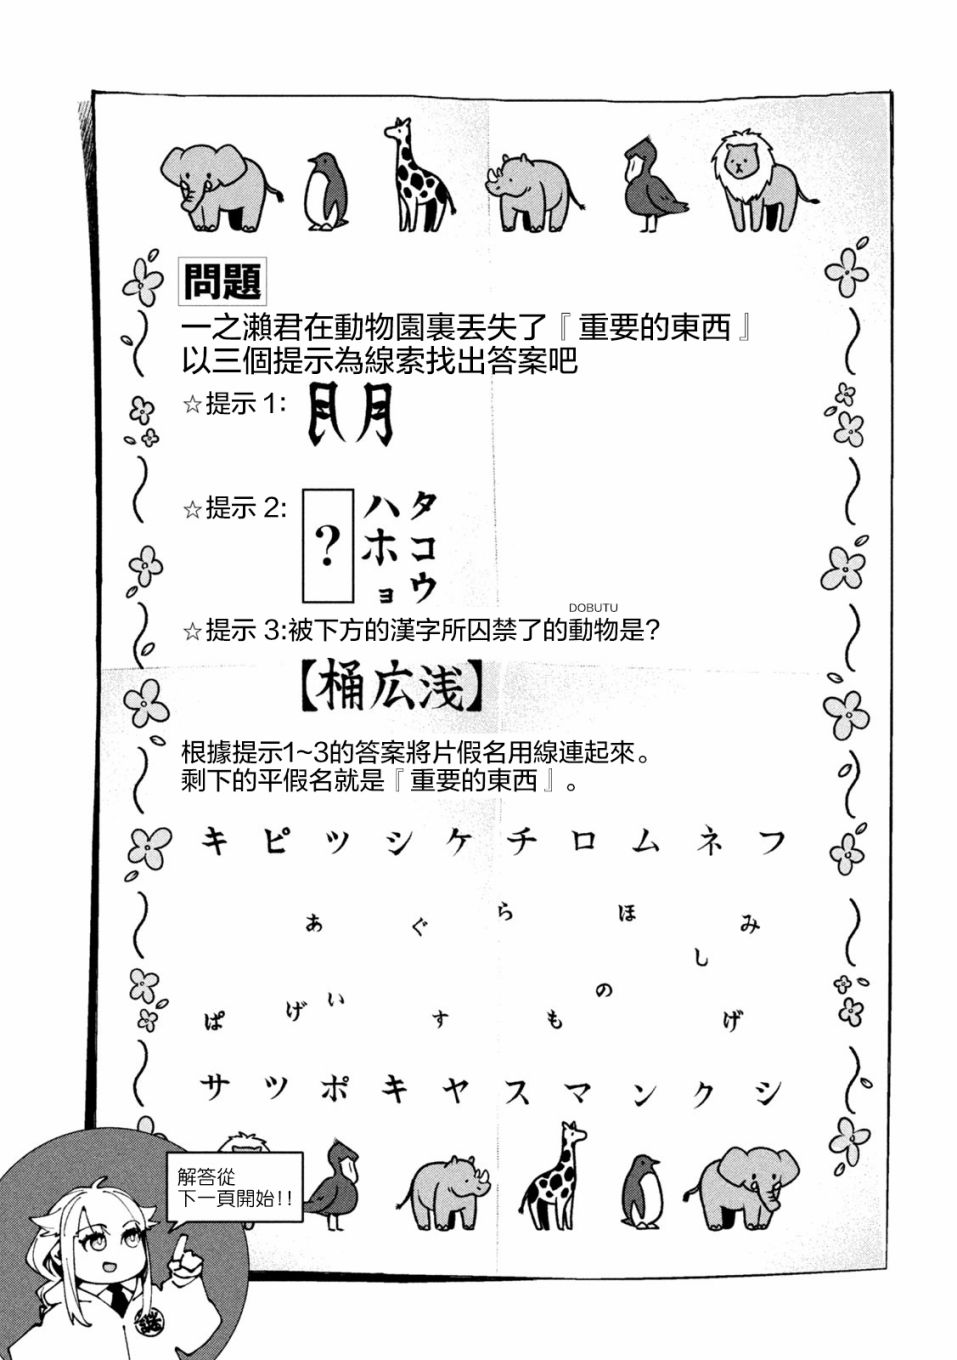 問題
一之瀨君在動物園裏丟失了『重要的東西』
以三個提示為線索找出答案吧
☆提示1:
☆提示2:
タコウ
ハホョ
?
DOBUTU
☆提示3:被下方的漢字所囚禁了的動物是?
【桶広浅】
根據提示1~3的答案將片假名用線連起來。
剩下的平假名就是『重要的東西』。
キピツシケチロムネフ
あぐらほみ
し
ぱげいすものげ
サツポキヤスマンクシ
解答從
下一頁開始!!
謎